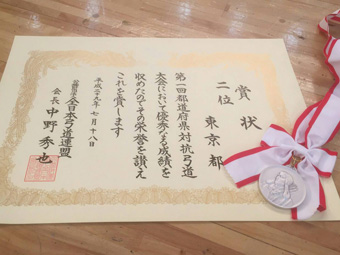 賞状
二位
東京都
第一回都道府県対抗弓道
大会において優秀なる成績を
収めたのでその栄誉を讃え
これを賞します
平成二十九年七月十八日
全日本弓道連盟
会長 中野秀也